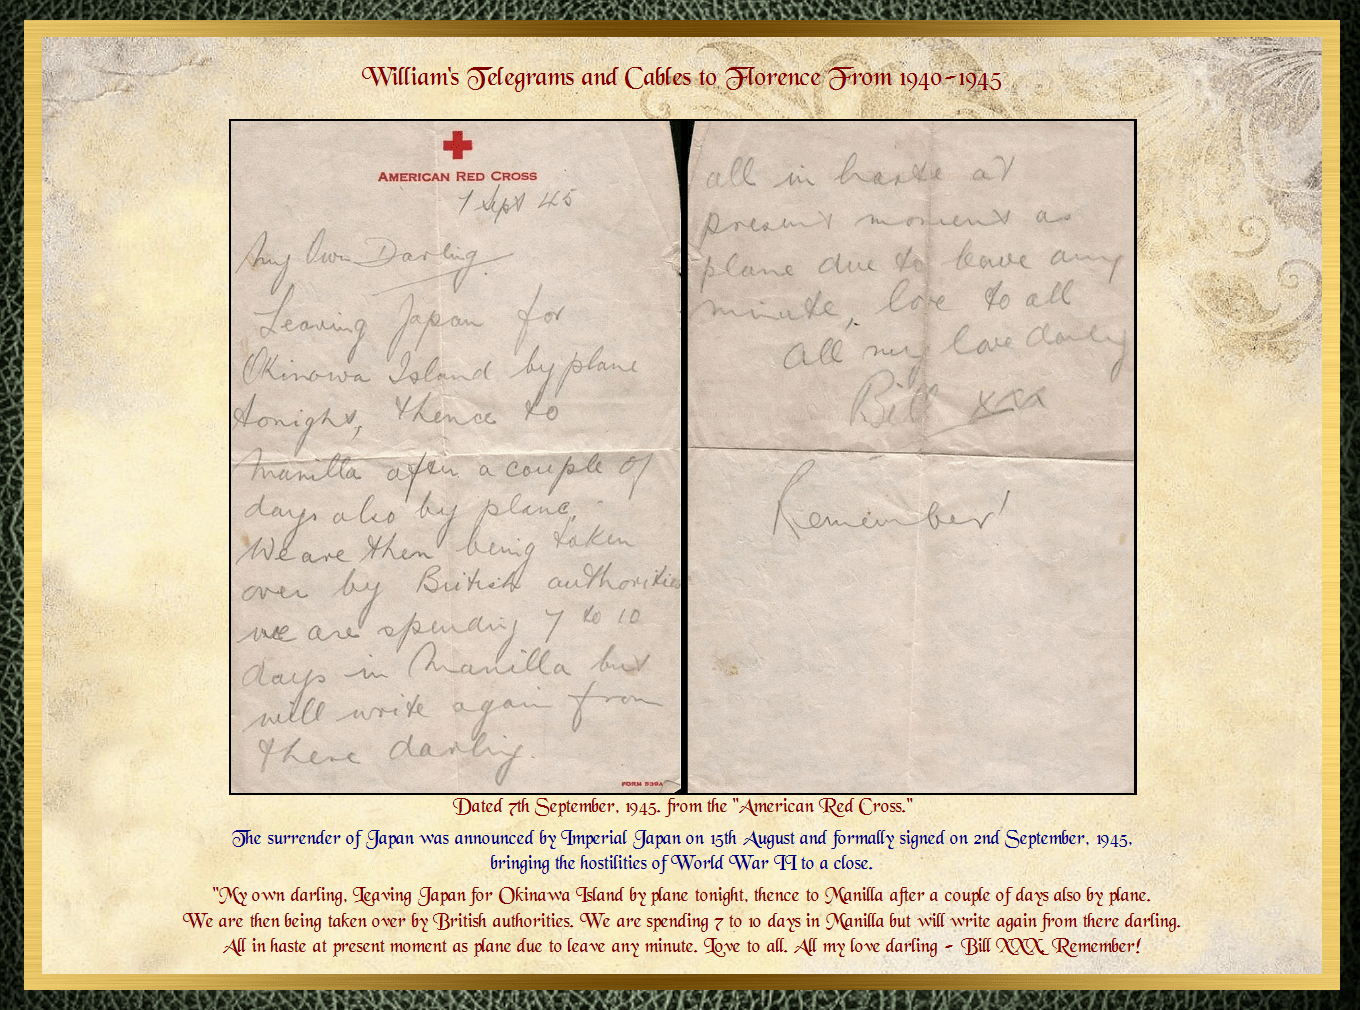 William's Telegrams and Cables to Florence From 1940-1945
AMERICAN RED CROSS
7 Sept 45
My Own Darling
Leaving Japan for
Okinawa Island by plane
tonight, thence to
Manilla after a couple of
days also by plane.
We are then being taken
over by British authorities
we are spending 7 to 10
days in Manilla but
will write again from
there darling.
FORM 539A
all in haste at
present moment as
plane due to leave any
minute, love to all
All my love darling
Bill xxx
Remember!
Dated 7th September, 1945. from the "American Red Cross."
The surrender of Japan was announced by Imperial Japan on 15th August and formally signed on 2nd September, 1945,
bringing the hostilities of World War II to a close.
"My own darling, Leaving Japan for Okinawa Island by plane tonight, thence to Manilla after a couple of days also by plane.
We are then being taken over by British authorities. We are spending 7 to 10 days in Manilla but will write again from there darling.
All in haste at present moment as plane due to leave any minute. Love to all. All my love darling - Bill XXX Remember!